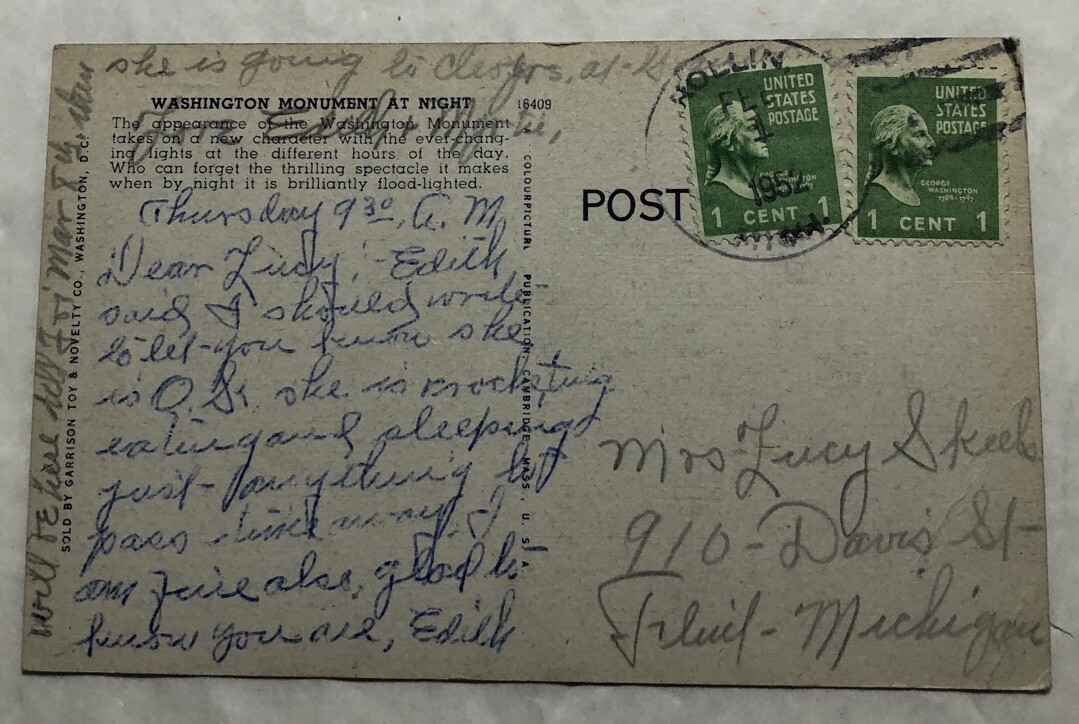 she is going to at
WASHINGTON MONUMENT AT NIGHT 16409
The appearance of the Washington Monument
takes on a new character with the ever-chang-
ing lights at the different hours of the day.
Who can forget the thrilling spectacle it makes
when by night it is brilliantly flood-lighted.
Love
Thursday 9 30 A. M.
Dear Lucy,- Edith
said I should write
to let you know she
is O. K. she is
eating and sleeping
just anything to
pass time away. I
am fine also, glad to
know you are, Edith
will be here till Fri Mar 8th then
SOLD BY GARRISON TOY & NOVELTY CO., WASHINGTON, D.C.
COLOURPICTURE PUBLICATION, CAMBRIDGE, MASS., U. S. A.
POST
NOLLIN
FEB
1
1952
UNITED
STATES
POSTAGE
1 CENT 1
UNITED
STATES
POSTAGE
GEORGE
WASHINGTON
1789-1797
1 CENT 1
Mrs Lucy
910 - Davis St
Flint - Michigan